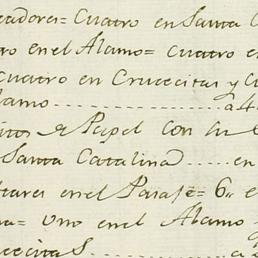 eadores = Cuatro en Santa C
ro en el Alamo = cuatro en
cuatro en Crucecitas y C
lamo ........ a 4
itos de Papel con su
Santa Catalina ..... en
teares en el Parase = 6 e
na = uno en el Alamo
ecitas ........ a